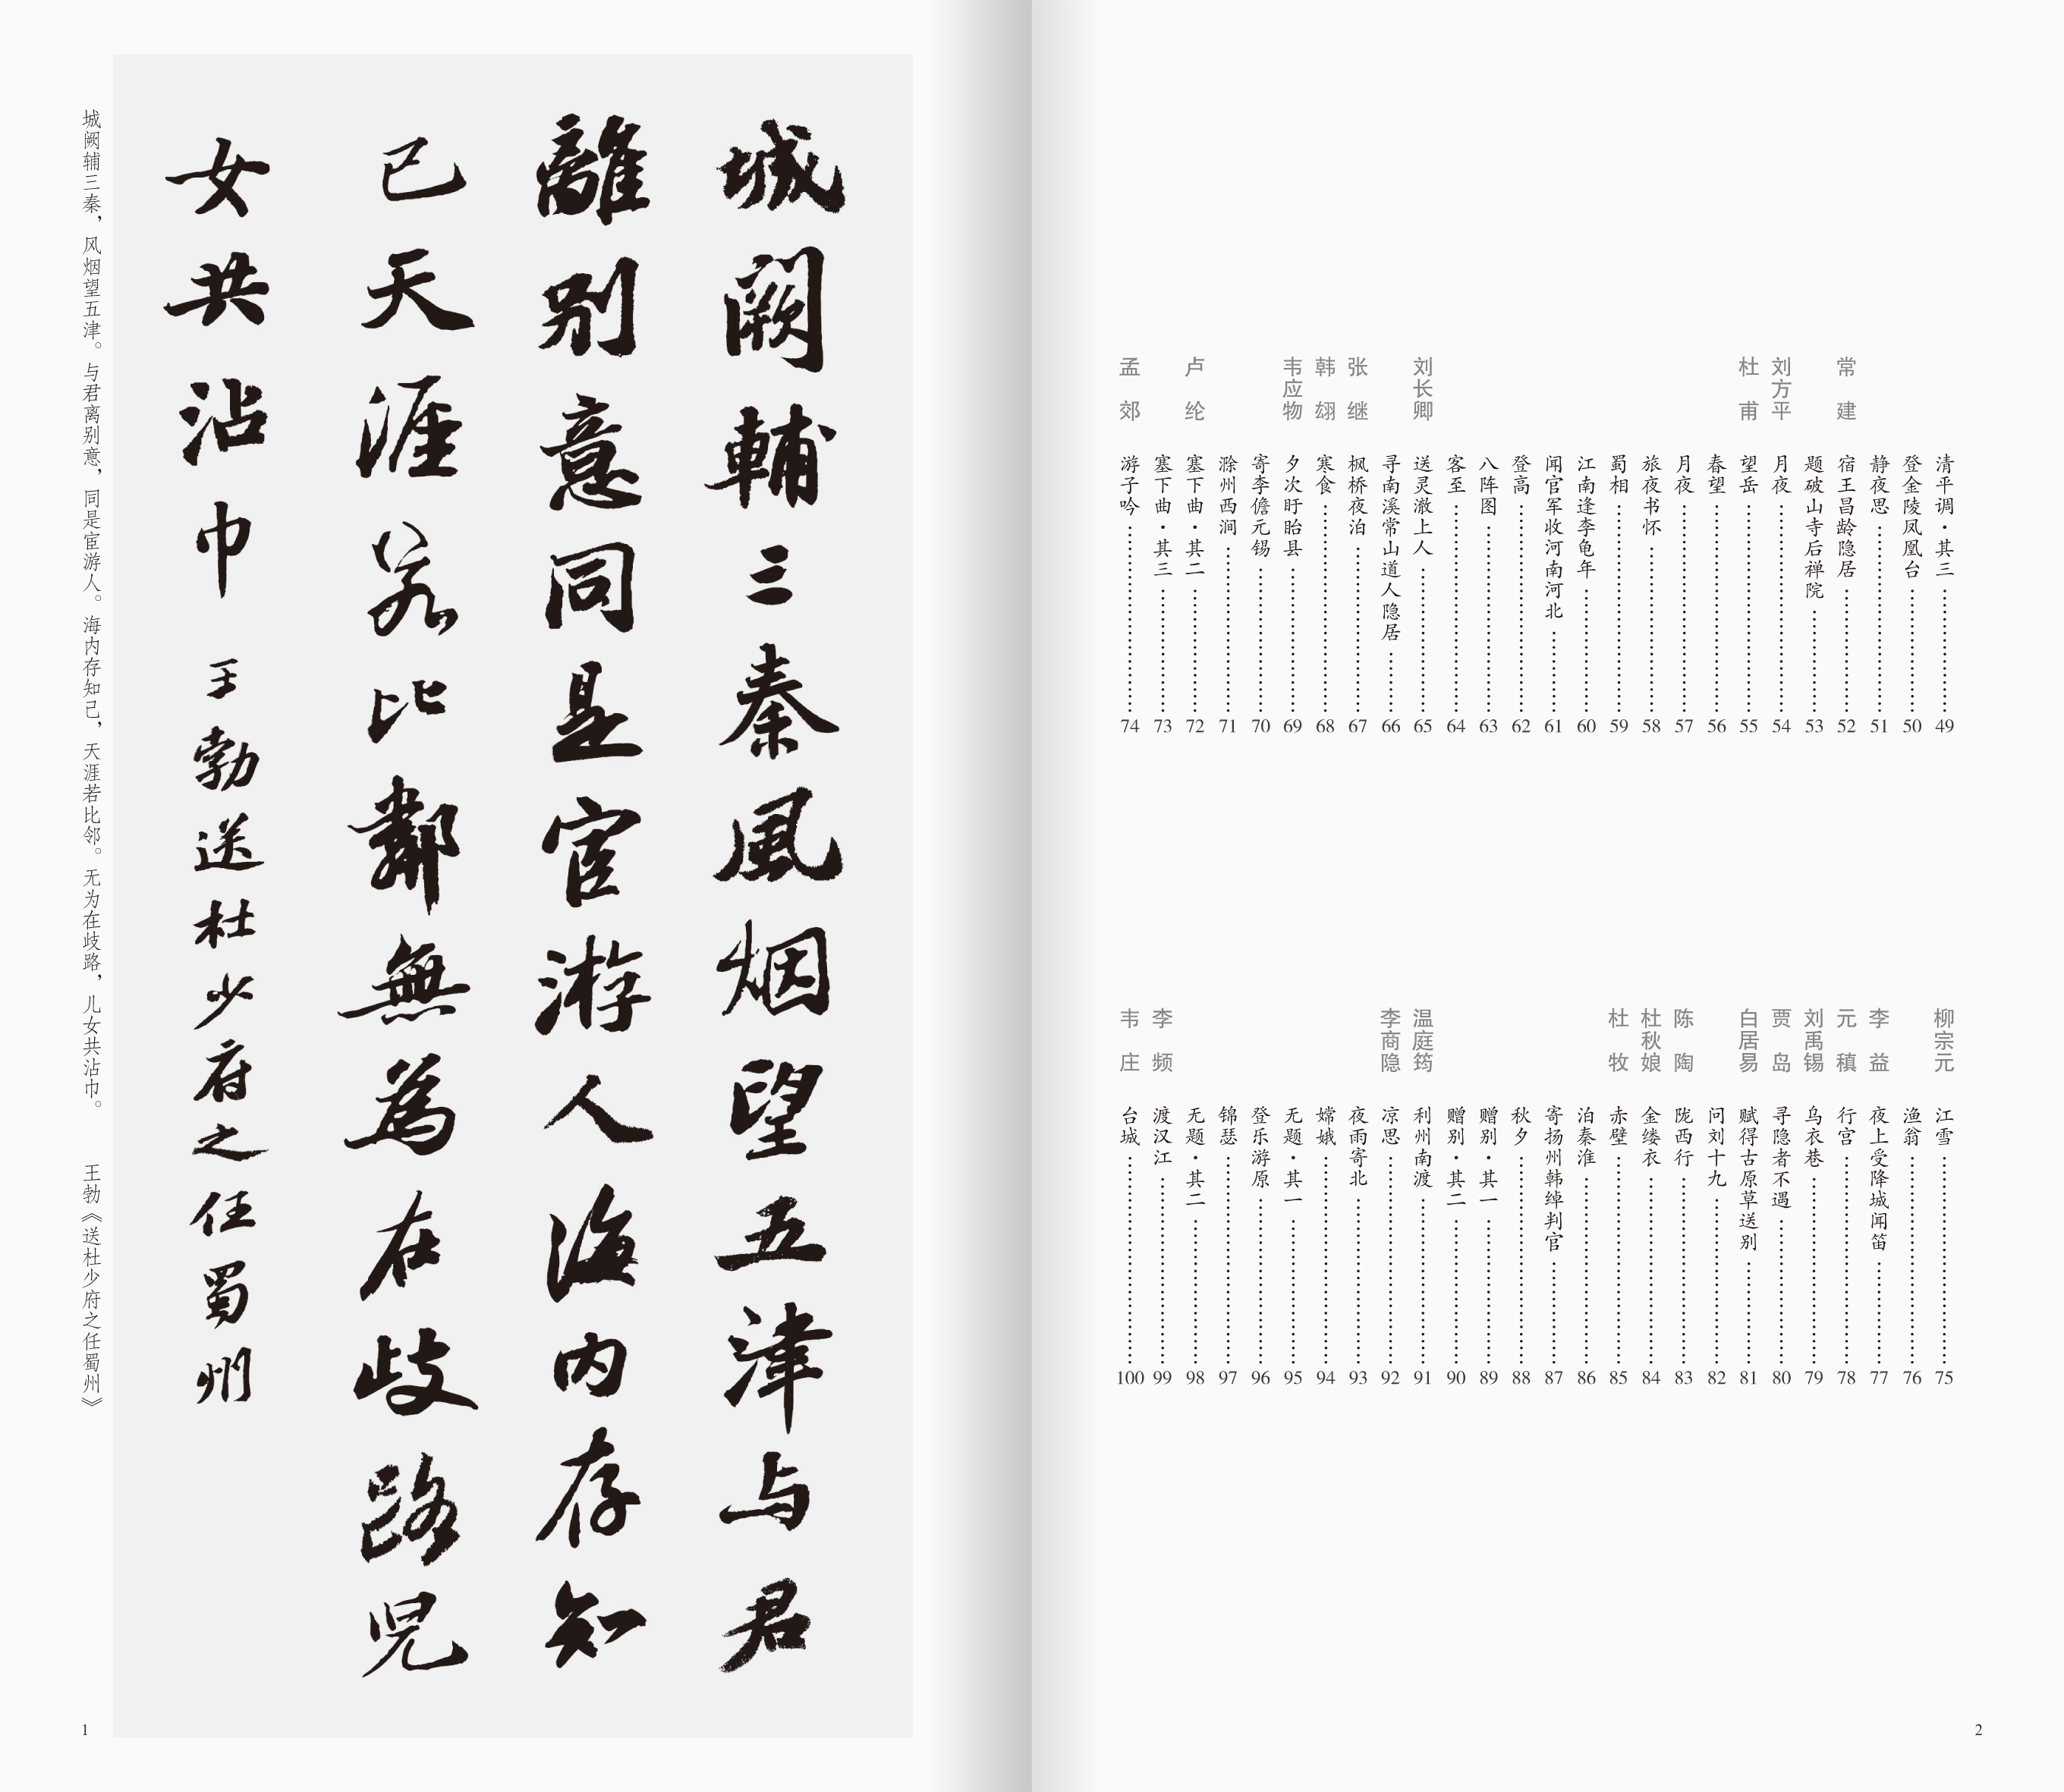 城闕輔三秦風烟望五津与君
離別意同是宦游人海内存知
己天涯若比鄰無為在歧路児
女共沾巾 王勃送杜少府之任蜀州
城阙辅三秦，风烟望五津。与君离别意，同是宦游人。海内存知己，天涯若比邻。无为在歧路，儿女共沾巾。 王勃《送杜少府之任蜀州》
1
清平调·其三 49
登金陵凤凰台 50
静夜思 51
常建 宿王昌龄隐居 52
题破山寺后禅院 53
刘方平 月夜 54
杜甫 望岳 55
春望 56
月夜 57
旅夜书怀 58
蜀相 59
江南逢李龟年 60
闻官军收河南河北 61
登高 62
八阵图 63
客至 64
刘长卿 送灵澈上人 65
寻南溪常山道人隐居 66
张继 枫桥夜泊 67
韩翃 寒食 68
韦应物 夕次盱眙县 69
寄李儋元锡 70
滁州西涧 71
卢纶 塞下曲·其二 72
塞下曲·其三 73
孟郊 游子吟 74
柳宗元 江雪 75
渔翁 76
李益 夜上受降城闻笛 77
元稹 行宫 78
刘禹锡 乌衣巷 79
贾岛 寻隐者不遇 80
白居易 赋得古原草送别 81
问刘十九 82
陈陶 陇西行 83
杜秋娘 金缕衣 84
杜牧 赤壁 85
泊秦淮 86
寄扬州韩绰判官 87
秋夕 88
赠别·其一 89
赠别·其二 90
温庭筠 利州南渡 91
李商隐 凉思 92
夜雨寄北 93
嫦娥 94
无题·其一 95
登乐游原 96
锦瑟 97
无题·其二 98
李频 渡汉江 99
韦庄 台城 100
2